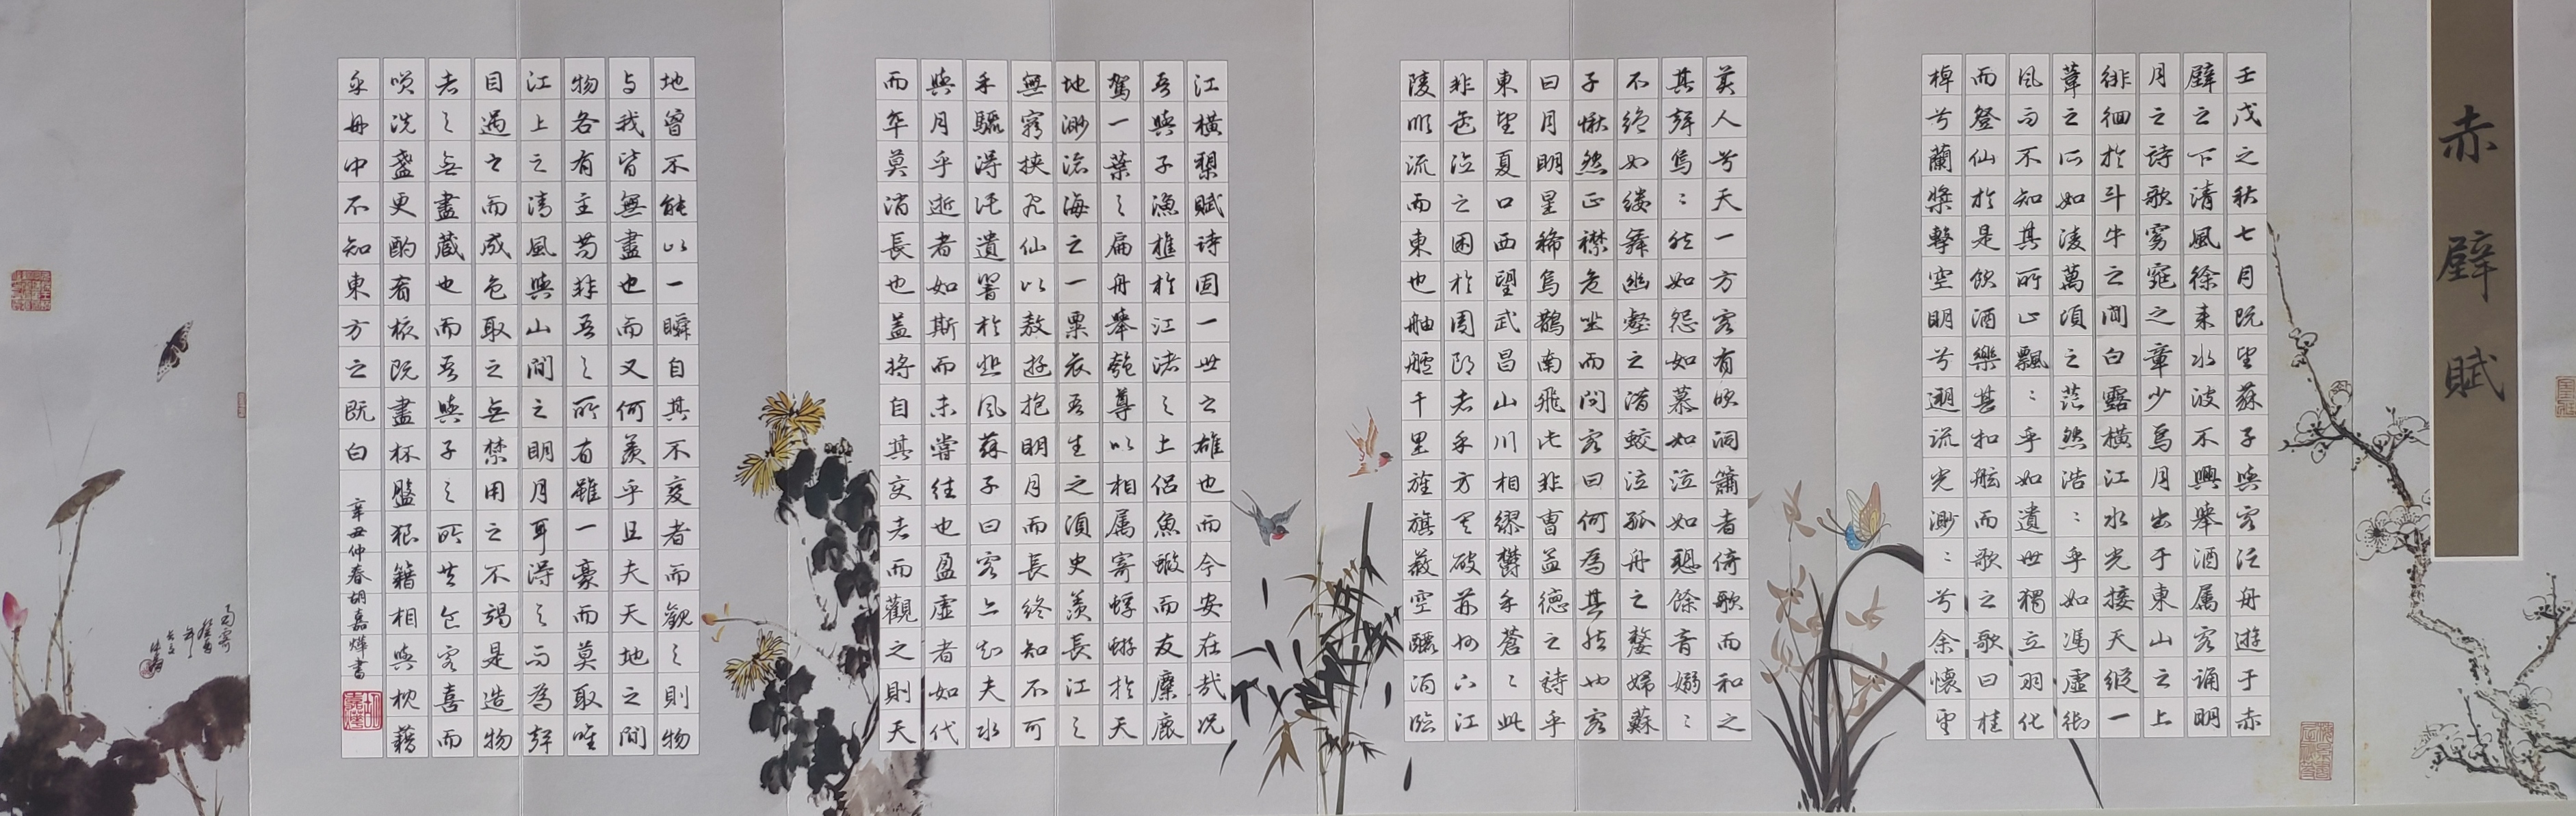 赤壁賦
壬戌之秋七月既望蘇子與客泛舟遊于赤
壁之下清風徐来水波不興舉酒属客誦明
月之詩歌窈窕之章少焉月出于東山之上
徘徊於斗牛之間白露橫江水光接天縱一
葦之所如淩萬頃之茫然浩〻乎如馮虛御
風而不知其所止飄〻乎如遺世獨立羽化
而登仙於是飲酒樂甚扣舷而歌之歌曰桂
棹兮蘭槳擊空明兮遡流光渺〻兮余懷望
美人兮天一方客有吹洞簫者倚歌而和之
其聲烏〻然如怨如慕如泣如愬餘音嫋〻
不絕如縷舞幽壑之潛蛟泣孤舟之嫠婦蘇
子愀然正襟危坐而問客曰何為其然也客
曰月明星稀烏鵲南飛此非曹孟德之詩乎
東望夏口西望武昌山川相繆鬱乎蒼〻此
非之困於周郎者乎方其破荊州下江
陵順流而東也舳艫千里旌旗蔽空釃酒臨
江橫槊賦诗固一世之雄也而今安在哉况
吾與子漁樵於江渚之上侶魚蝦而友麋鹿
駕一葉之扁舟舉匏尊以相属寄蜉蝣於天
地渺滄海之一粟哀吾生之須臾羨長江之
無窮挾飛仙以敖遊抱明月而長終知不可
乎驟得託遺響於悲風蘇子曰客亦知夫水
與月乎逝者如斯而未嘗往也盈虛者如代
而卒莫消長也蓋將自其变者而觀之則天
地曾不能以一瞬自其不變者而觀之則物
与我皆無盡也而又何羨乎且夫天地之間
物各有主苟非吾之所有雖一豪而莫取唯
江上之清風與山間之明月耳得之而為聲
目遇之而成色取之無禁用之不竭是造物
者之無盡藏也而吾與子之所共食客喜而
笑洗盞更酌肴核既盡杯盤狼籍相與枕藉
乎舟中不知東方之既白
辛丑仲春胡嘉燁書